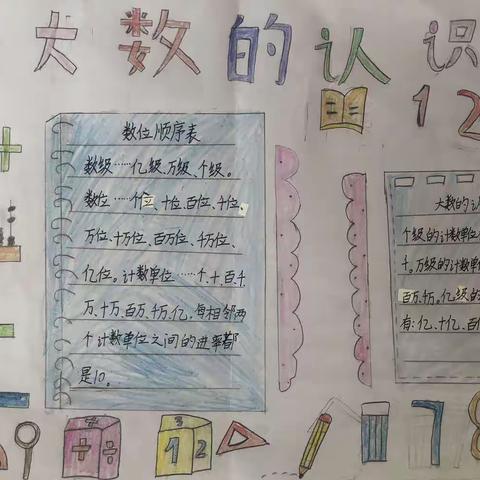 大数的认识
1 2
+
数位顺序表
数级……亿级、万级、个级。
数位……个位、十位、百位、千位、
万位、十万位、百万位、千万位、
亿位。计数单位……个、十、百、千
万、十万、百万、千万、亿，每相邻两
个计数单位之间的进率都
是10。
大数的认
个级的计数单位
千。万级的计数单
百万、千万。亿级的
有：亿、十亿、百
+ ÷
3
1 2
7 8